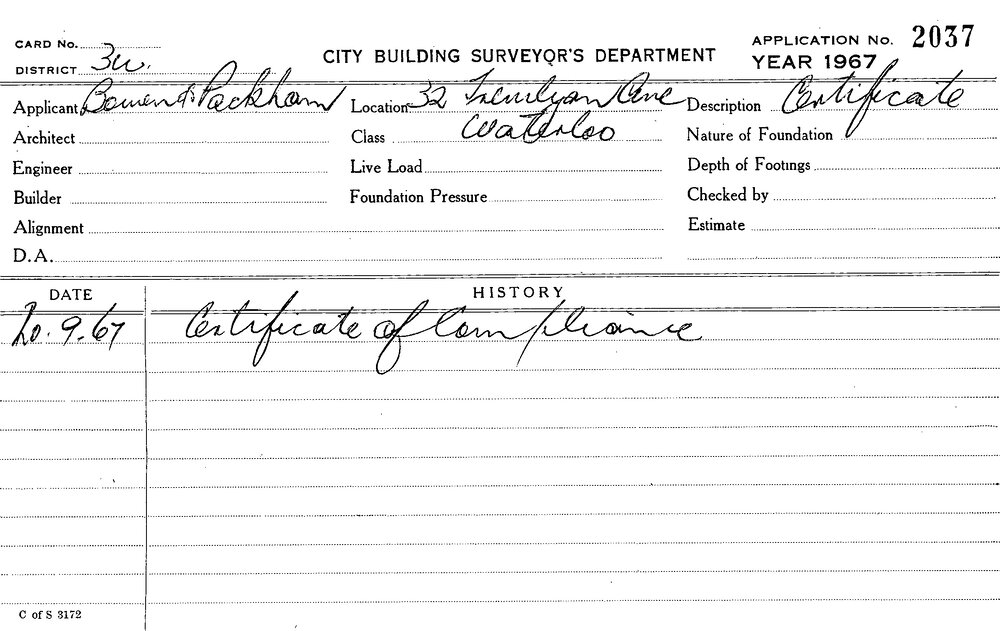 CARD No.
DISTRICT 3W.
CITY BUILDING SURVEYOR'S DEPARTMENT
APPLICATION No. 2037
YEAR 1967
Applicant Bowen & Packham
Location 32 Ave
Waterloo
Description Certificate
Architect
Class
Nature of Foundation
Engineer
Live Load
Depth of Footings
Builder
Foundation Pressure
Checked by
Alignment
Estimate
D.A.
DATE
HISTORY
20.9.67 Certificate of Compliance
C of S 3172